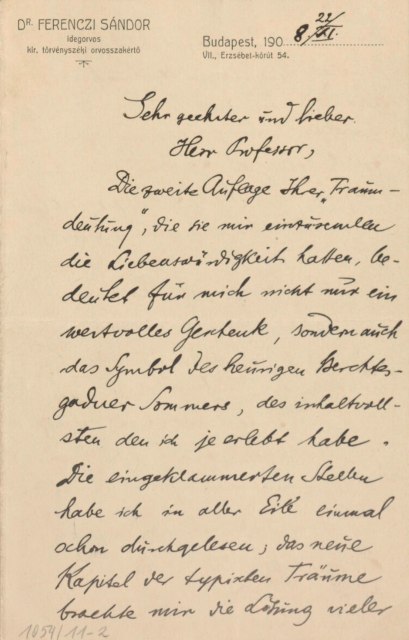 Dr. FERENCZI SÁNDOR
idegorvos
kir. törvényszéki orvosszakértő
Budapest, 1908 22/XI.
VII., Erzsébet-körút 54.
Sehr geehrter und lieber
Herr Professor,
Die zweite Auflage Ihrer „Traum-
deutung“, die sie mir einzusenden
die Liebenswürdigkeit hatten, be-
deutet für mich nicht nur ein
wertvolles Geschenk, sondern auch
das Symbol des heurigen Berchtes-
gadner Sommers, des inhaltvoll-
sten den ich je erlebt habe.
Die eingeklammerten Stellen
habe ich in aller Eile einmal
schon durchgelesen; das neue
Kapitel der typischen Träume
brachte mir die Lösung vieler
1054/11-2